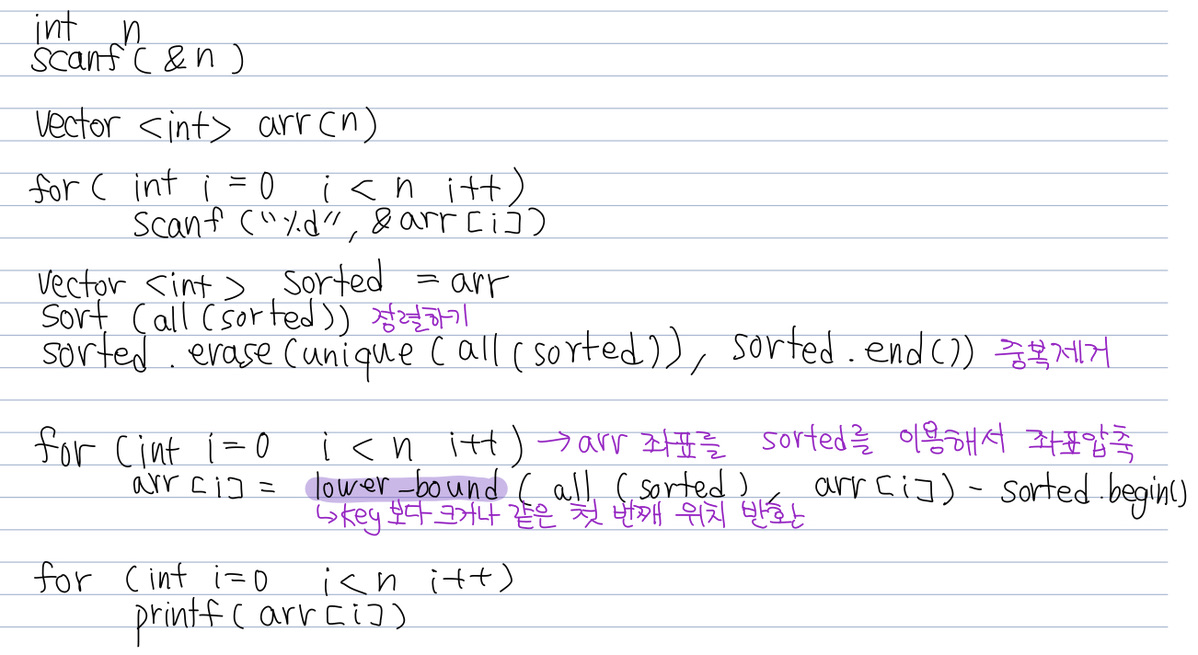 int n
scanf( &n )
vector <int> arr(n)
for( int i = 0 i < n i++)
scanf ("%d", &arr[i])
vector <int> sorted = arr
sort (all(sorted)) 정렬하기
sorted.erase(unique(all(sorted)), sorted.end()) 중복제거
for (int i=0 i < n i++) → arr 좌표를 sorted를 이용해서 좌표압축
arr[i] = lower_bound( all (sorted), arr[i]) - sorted.begin()
↳key보다 크거나 같은 첫 번째 위치 반환
for (int i=0 i<n i++)
printf( arr[i])